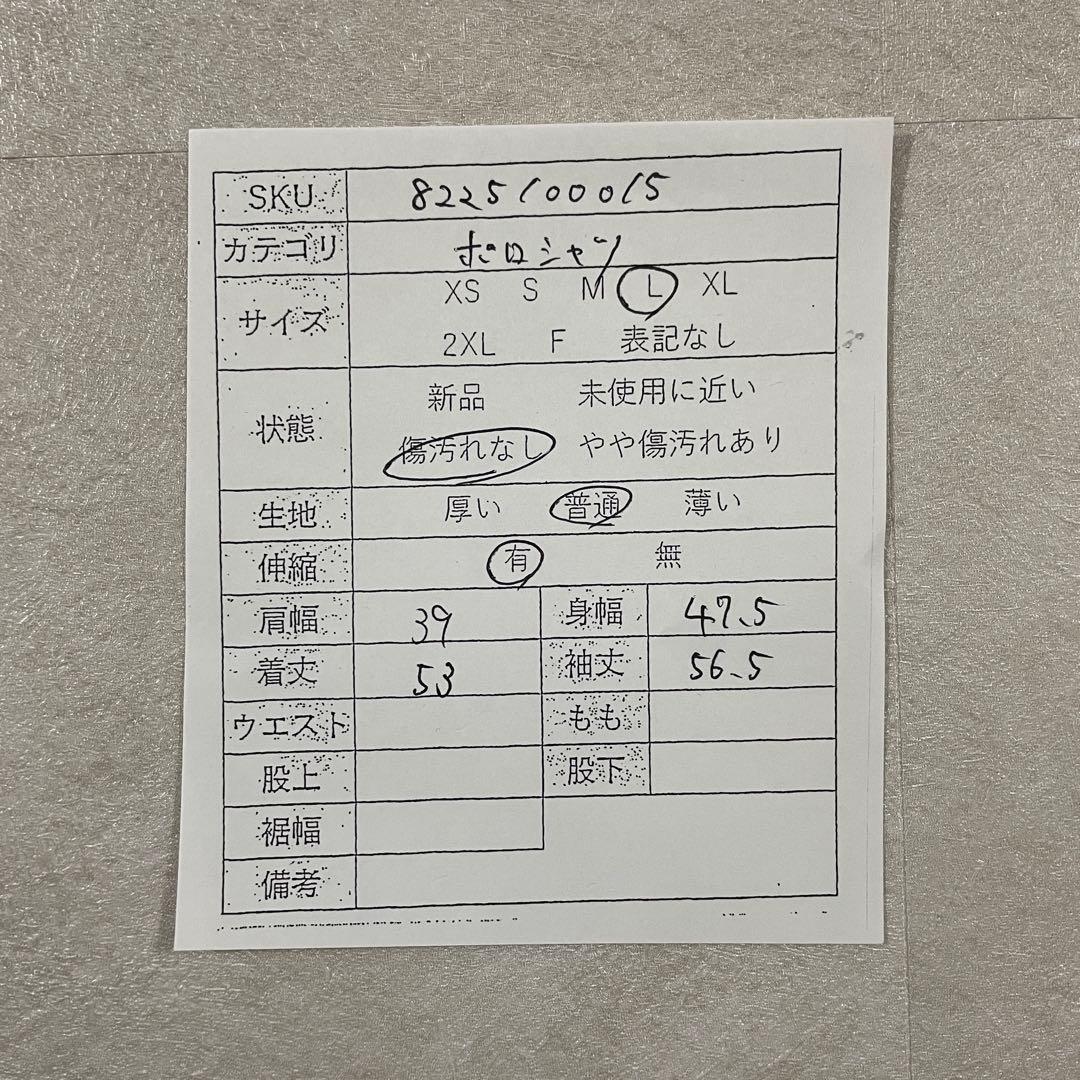 SKU 8225100015
カテゴリ ポロシャツ
サイズ XS S M L XL
2XL F 表記なし
状態 新品 未使用に近い
傷汚れなし やや傷汚れあり
生地 厚い 普通 薄い
伸縮 有 無
肩幅 39 身幅 47.5
着丈 53 袖丈 56.5
ウエスト もも
股上 股下
裾幅
備考